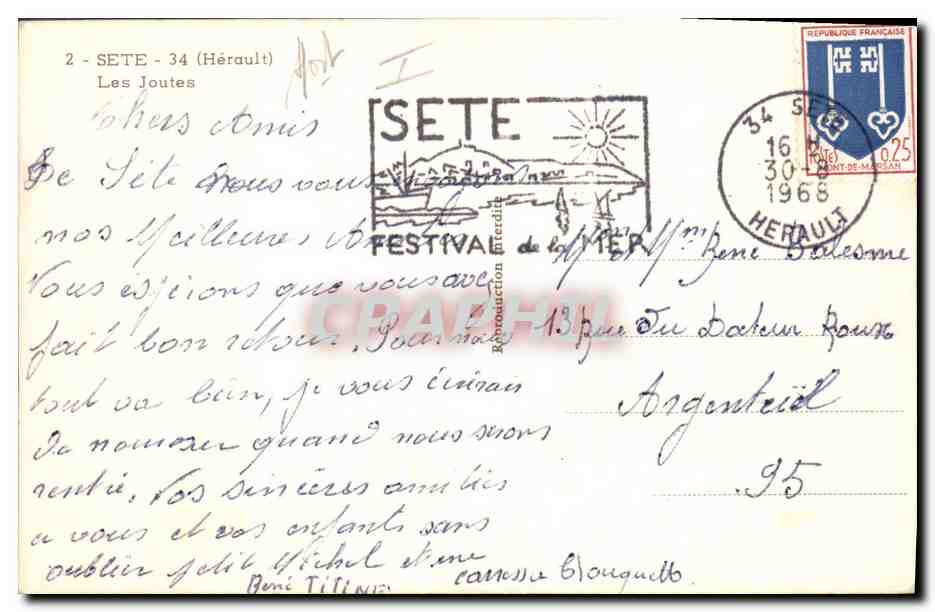 2 - SETE - 34 (Hérault)
Les Joutes
Mort I
Chers Amis
De Sète nous vous
nos Meilleures
Nous espérons que vous avez
fait bon retour. Pour nous
tout va bien, je vous écrirais
quand nous serons
rentré. Nos sincères amitiés
a vous et vos enfants sans
oublier petit Michel et une
caresse a Blanquette
René TITINE
SETE
FESTIVAL de la MER
Reproduction interdite
34 SETE
16 H
30 -8
1966
HERAULT
REPUBLIQUE FRANÇAISE
POSTES 0,25
MONT-DE-MARSAN
Mr et Mme René Dalesme
13 Rue du Docteur Roux
Argenteuil
95
CPAPHIL